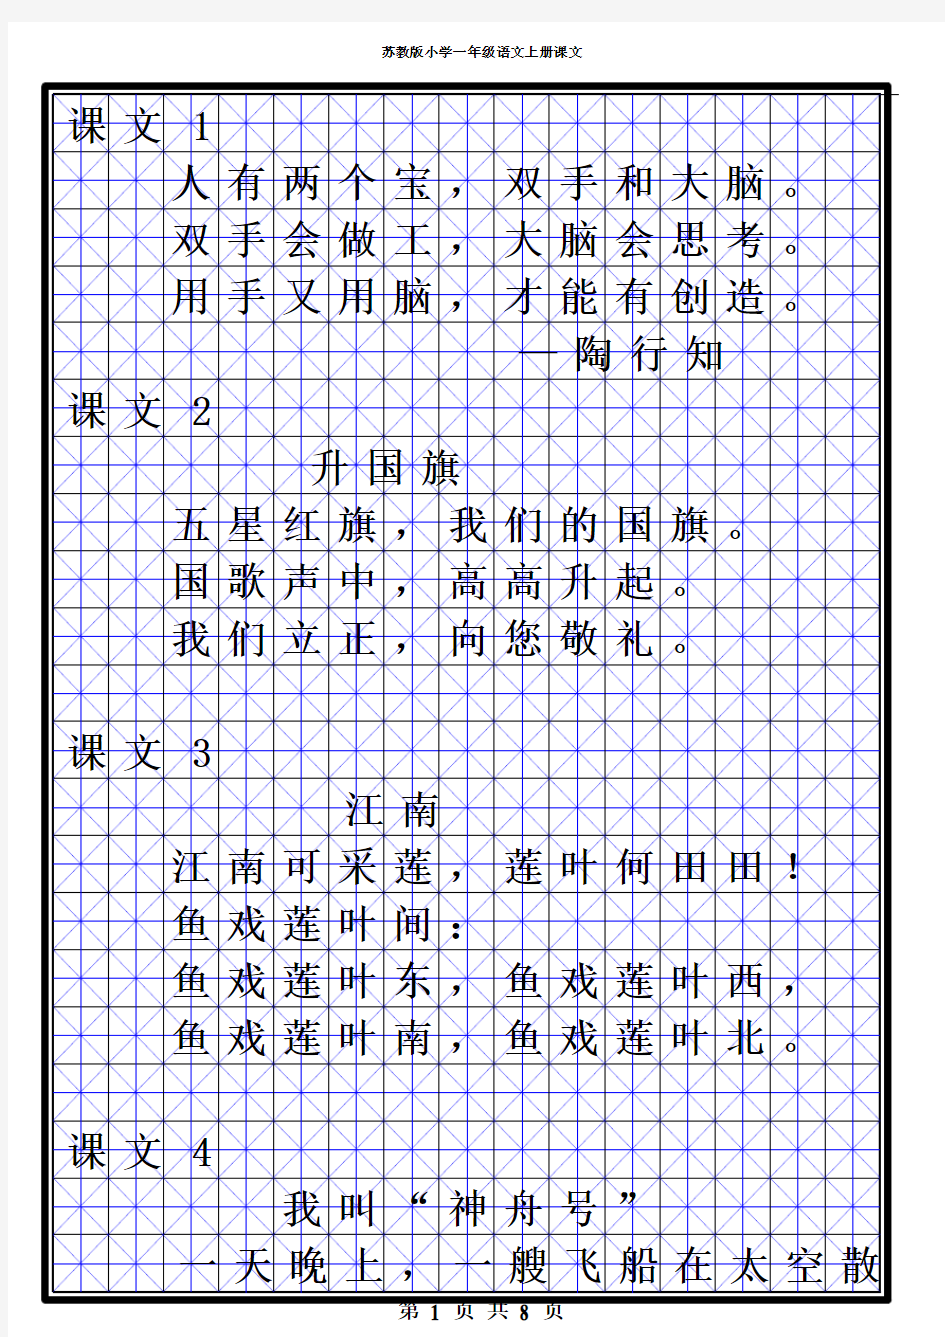 苏教版小学一年级语文上册课文
课文1
人有两个宝，双手和大脑。
双手会做工，大脑会思考。
用手又用脑，才能有创造。
—陶行知
课文2
升国旗
五星红旗，我们的国旗。
国歌声中，高高升起。
我们立正，向您敬礼。
课文3
江南
江南可采莲，莲叶何田田！
鱼戏莲叶间：
鱼戏莲叶东，鱼戏莲叶西，
鱼戏莲叶南，鱼戏莲叶北。
课文4
我叫“神舟号”
一天晚上，一艘飞船在太空散
第 1 页 共 8 页